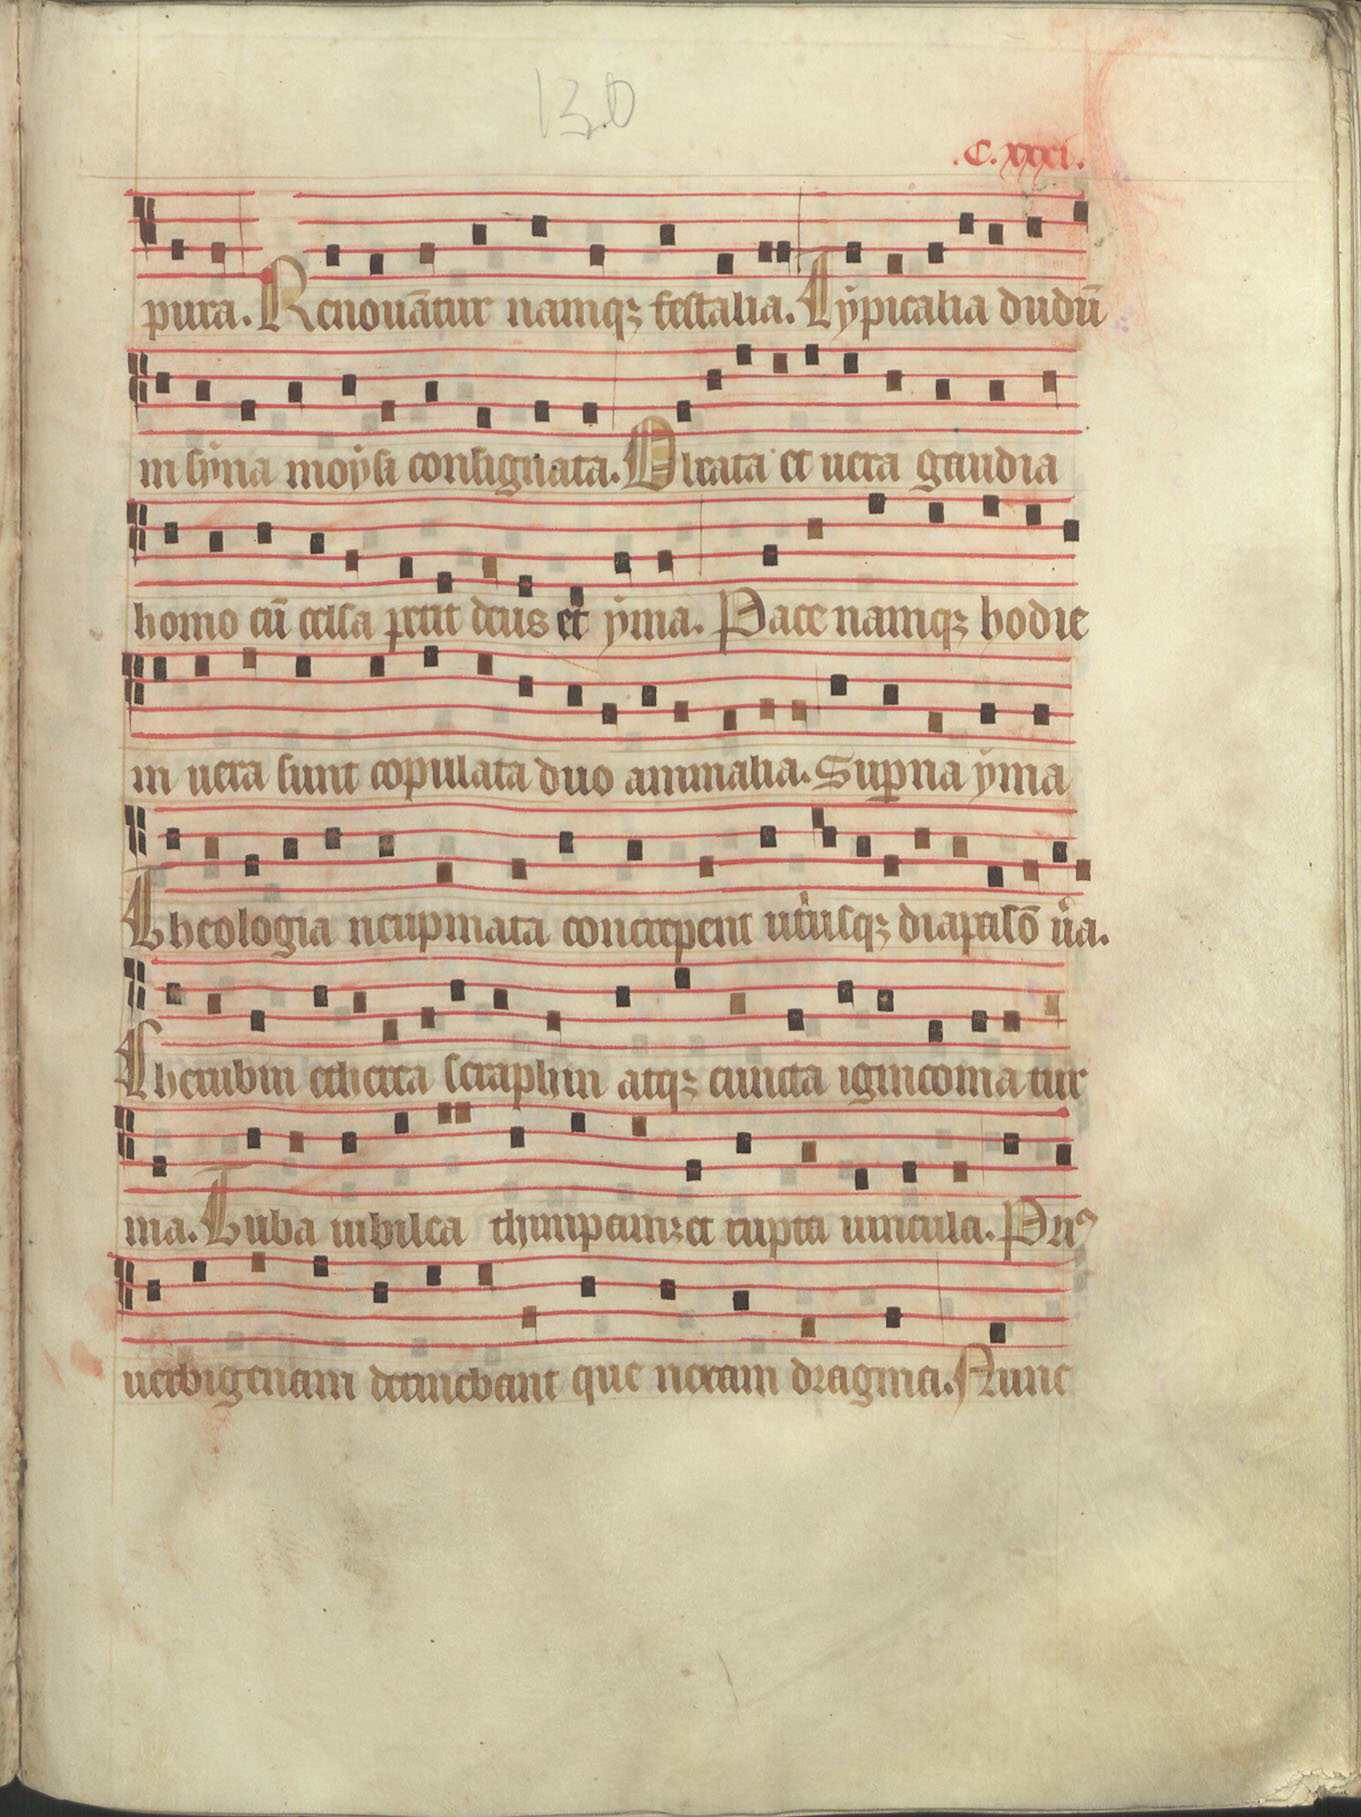 130
.C.xxxi.
pura. Renouãtur namqꝫ festalia. Tẏpicalia dudũ
in sẏna moẏsi consignata. Oblata et uera gaudia
homo cũ celsa petit deus et ẏma. Pace namqꝫ hodie
in uera sunt copulata duo animalia. Supna ẏma
Theologia neupmata concrepent utriusqꝫ diapasõ
Cherubin etherea seraphin atqꝫ cuncta ignicoma tur
ma. Tuba iubilea et rupta uincula.
uerbigenam detinebant que noctam dragma. Nunc